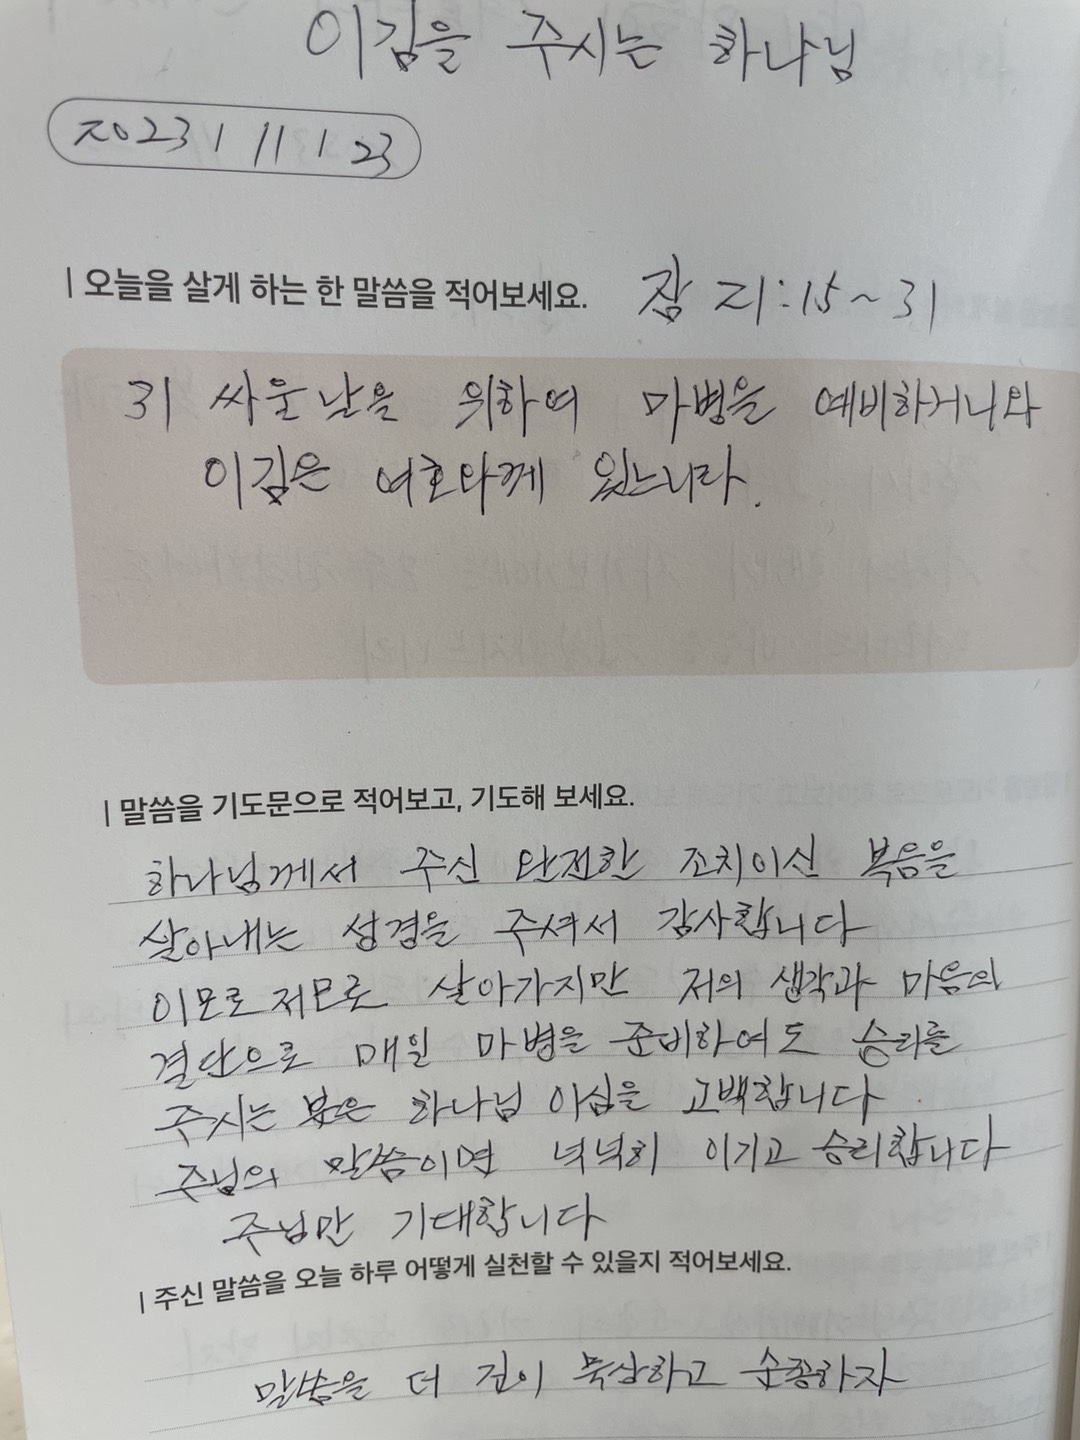 이김을 주시는 하나님
2023 / 11 / 23
| 오늘을 살게 하는 한 말씀을 적어보세요. 잠 21:15~31
31 싸울 날을 위하여 마병을 예비하거니와
이김은 여호와께 있느니라.
| 말씀을 기도문으로 적어보고, 기도해 보세요.
하나님께서 주신 완전한 조치이신 복음을
살아내는 성경을 주셔서 감사합니다
이모로 저모로 살아가지만 저의 생각과 마음의
결단으로 매일 마병을 준비하여도 승리를
주시는 하나님 이심을 고백합니다
주님의 말씀이면 넉넉히 이기고 승리합니다
주님만 기대합니다
| 주신 말씀을 오늘 하루 어떻게 실천할 수 있을지 적어보세요.
말씀을 더 깊이 묵상하고 순종하자